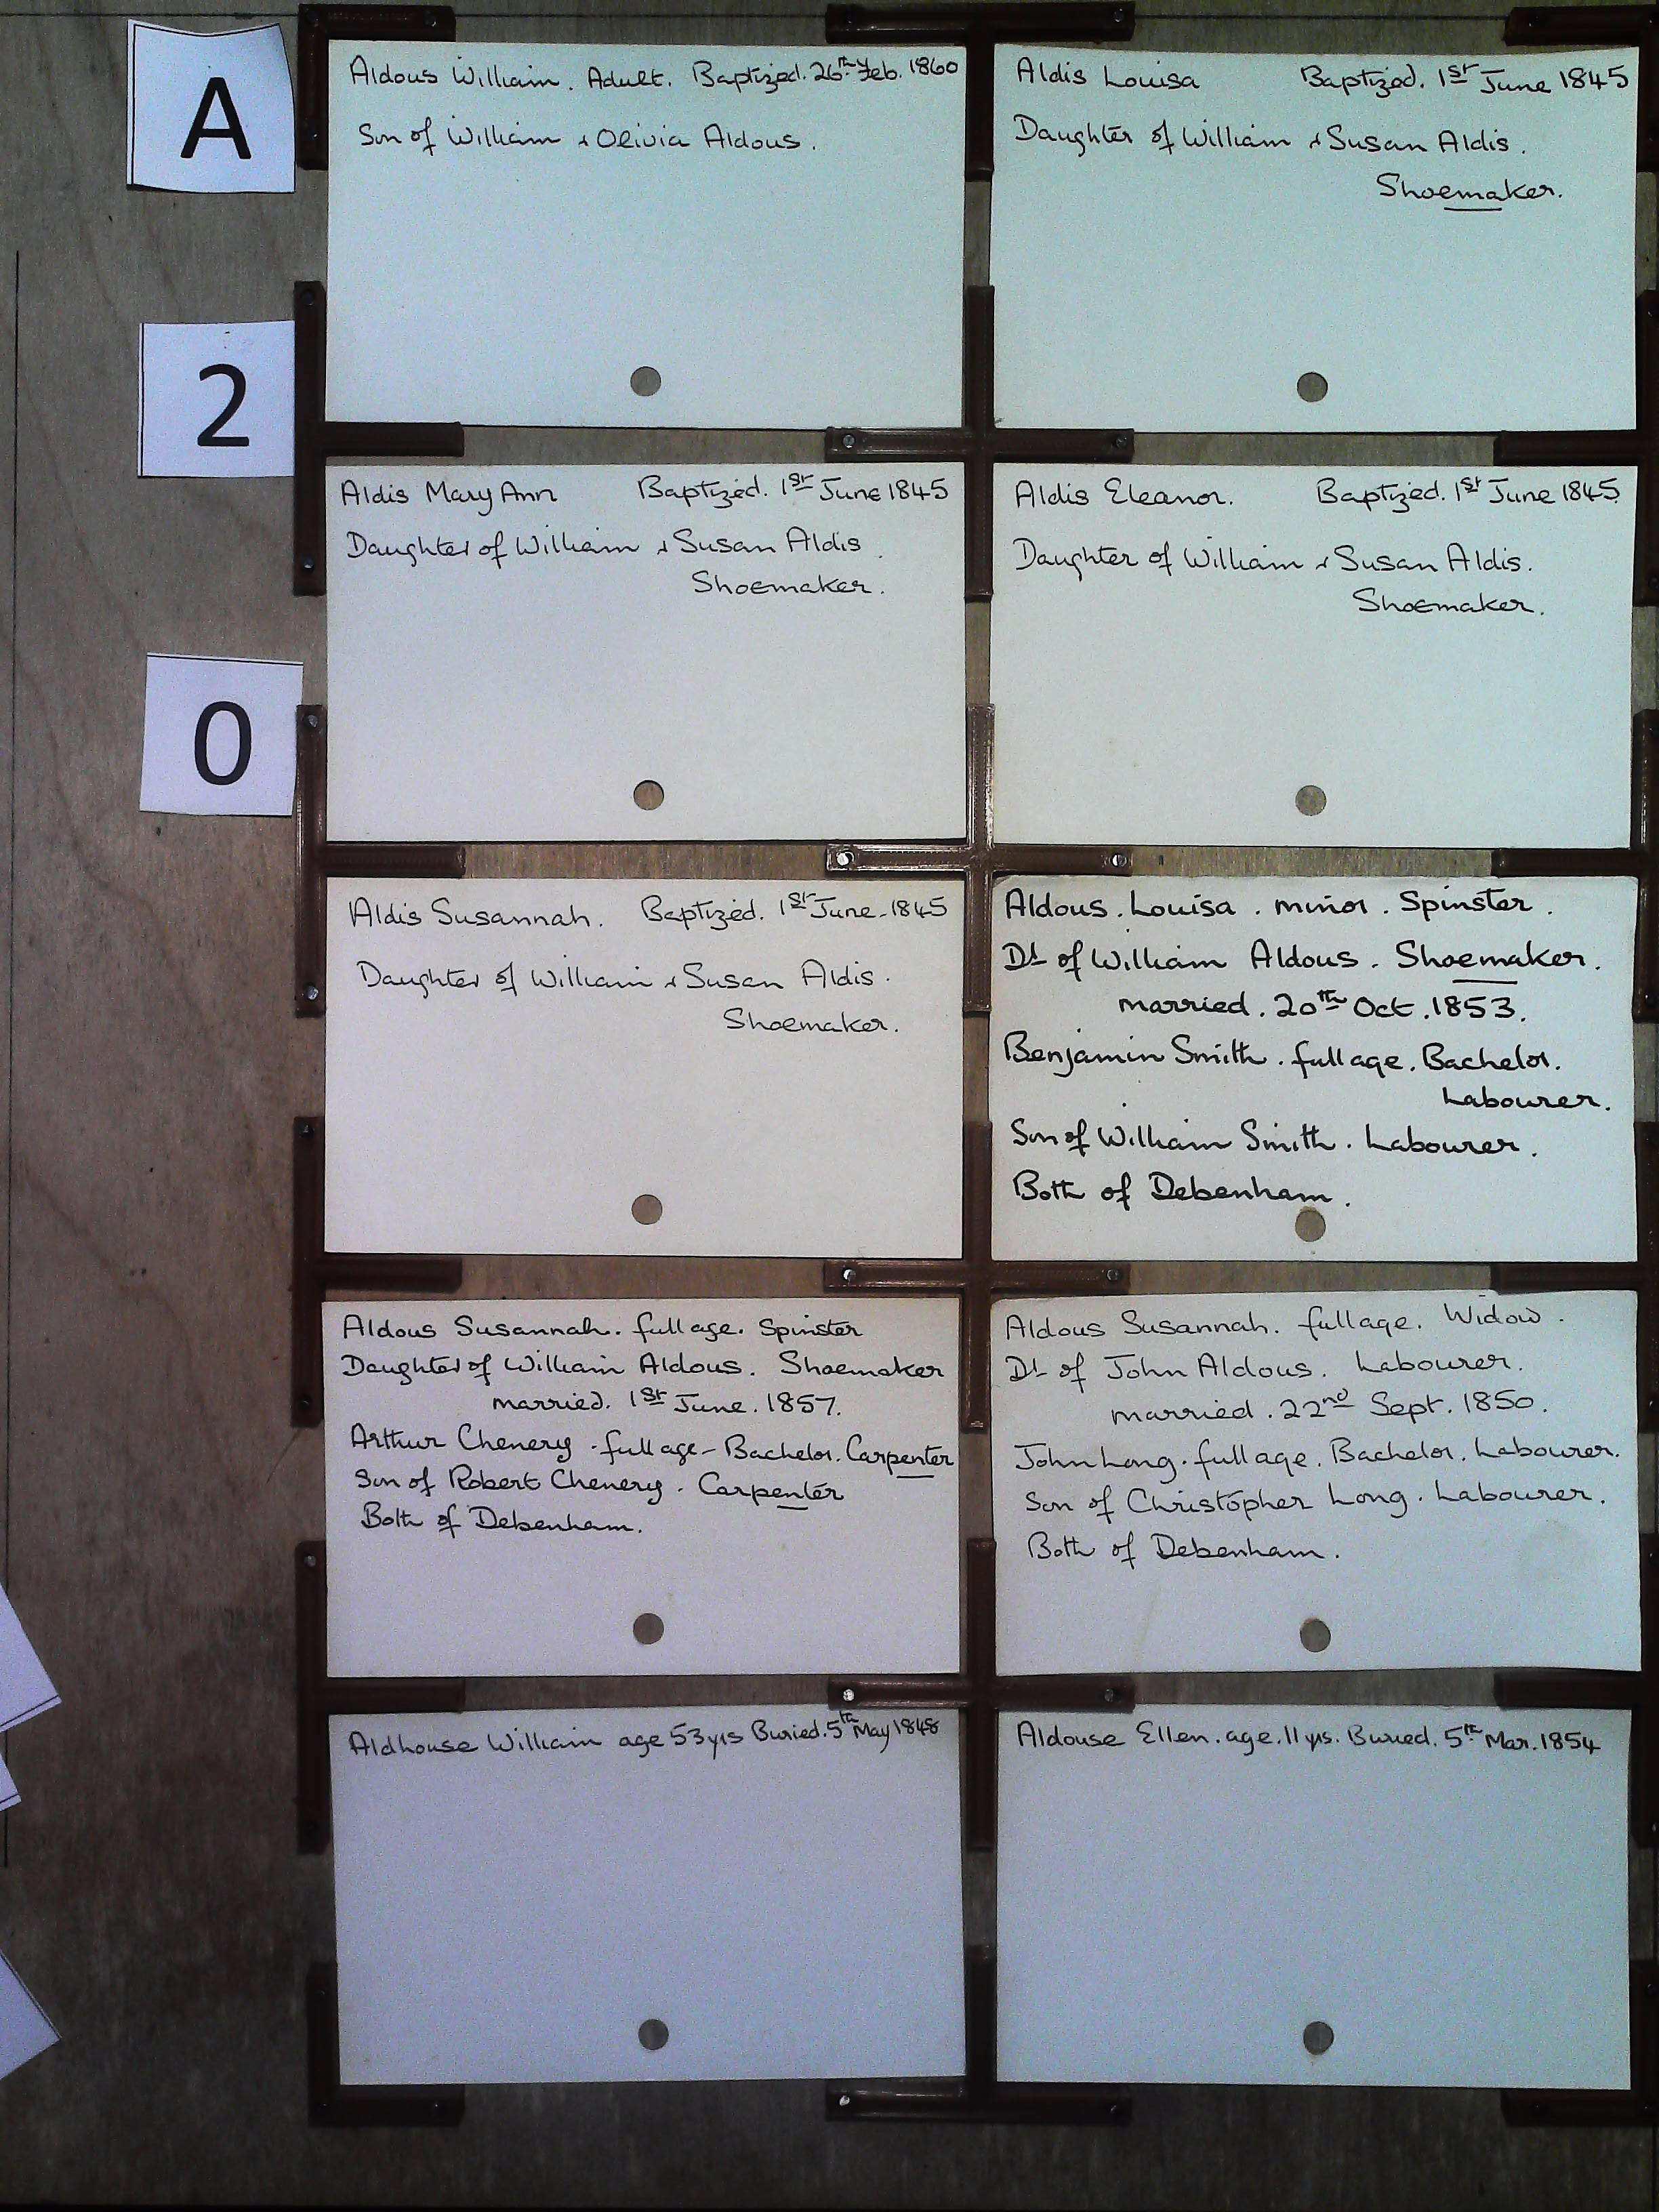 A
2
0
Aldous William. Adult. Baptized. 26th Feb. 1860
Son of William & Olivia Aldous.
Aldis Louisa Baptized. 1st June 1845
Daughter of William & Susan Aldis.
Shoemaker.
Aldis Mary Ann Baptized. 1st June 1845
Daughter of William & Susan Aldis.
Shoemaker.
Aldis Eleanor. Baptized. 1st June 1845
Daughter of William & Susan Aldis.
Shoemaker.
Aldis Susannah. Baptized. 1st June - 1845
Daughter of William & Susan Aldis.
Shoemaker.
Aldous. Louisa. minor. Spinster.
Dt of William Aldous. Shoemaker.
married. 20th Oct. 1853.
Benjamin Smith. full age. Bachelor.
Labourer.
Son of William Smith. Labourer.
Both of Debenham.
Aldous Susannah. full age. Spinster
Daughter of William Aldous. Shoemaker
married. 1st June. 1857.
Arthur Chenery. full age - Bachelor. Carpenter
Son of Robert Chenery. Carpenter
Both of Debenham.
Aldous Susannah. full age. Widow.
Dt of John Aldous. Labourer.
married. 22nd Sept. 1850.
John Long. full age. Bachelor. Labourer.
Son of Christopher Long. Labourer.
Both of Debenham.
Aldhouse William age 53 yrs Buried. 5th May 1848
Aldouse Ellen. age. 11 yrs. Buried. 5th Mar. 1854